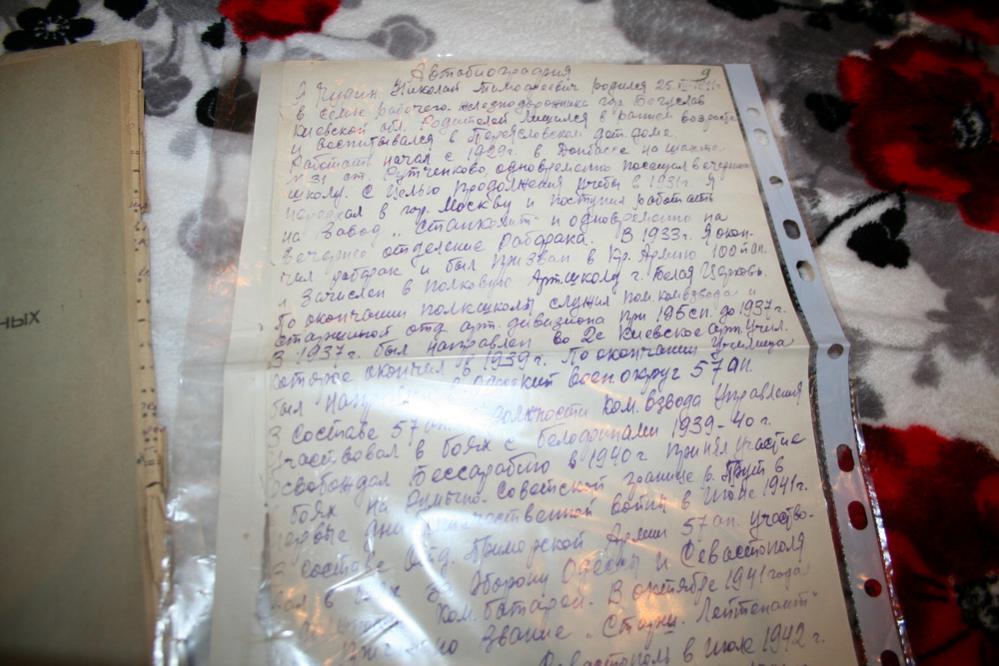 9
Автобиография
Я Чудин Николай Тимофеевич родился 25.
в семье рабочего-железнодорожника гор. Богуслав
Киевской обл. Родителей лишился в раннем возрасте
и воспитывался в дет. доме.
Работать начал с 1929г. в Донбассе на шахте
№ 31 ст. Рутченково, одновременно посещал вечернюю
школу. С целью продолжения учебы в 1931г. я
переехал в гор. Москву и поступил работать
на завод "Станколит" и одновременно на
вечернее отделение рабфака. В 1933г. я окон-
чил рабфак и был призван в Кр. Армию 100й ап.
и зачислен в полковую артшколу г. Белая Церковь.
По окончании полкшколы служил пом. комвзвода и
старшиной отд. арт. дивизиона при 195сп. до 1937г.
В 1937г. был направлен во 2е Киевское арт. учил.
которое окончил в 1939г. По окончании училища
был в Одесский военокруг 57 ап.
В составе 57 ап. должности ком. взвода управления
участвовал в боях с белофинами 1939-40г.
освобождал Бессарабию в 1940г. принял участие
в боях на Румыно-Советской границе р. Прут в
первые дни отечественной войны в июне 1941г.
В составе отд. Приморской Армии 57 ап. участво-
вал в боях за оборону Одессы и Севастополя
ком. батареи. В октябре 1941 года
звание "Старш. Лейтенант"
Севастополь в июле 1942 г.
ных